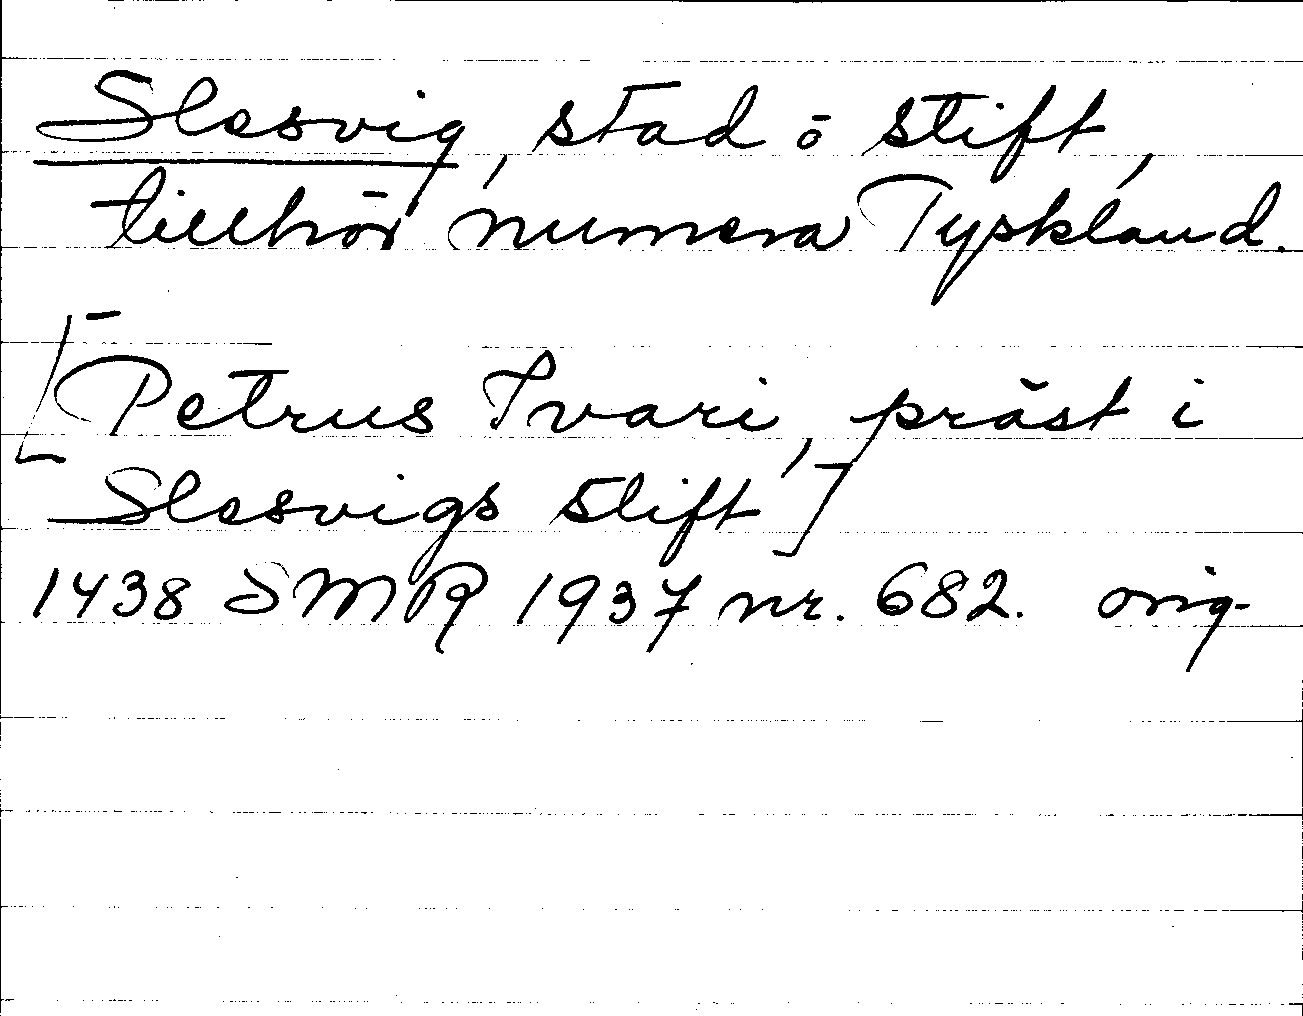 Slesvig, stad o stift,
tillhör numera Tyskland.
[Petrus Ivari, präst i
Slesvigs stift]
1438 SMR 1937 nr. 682. orig.